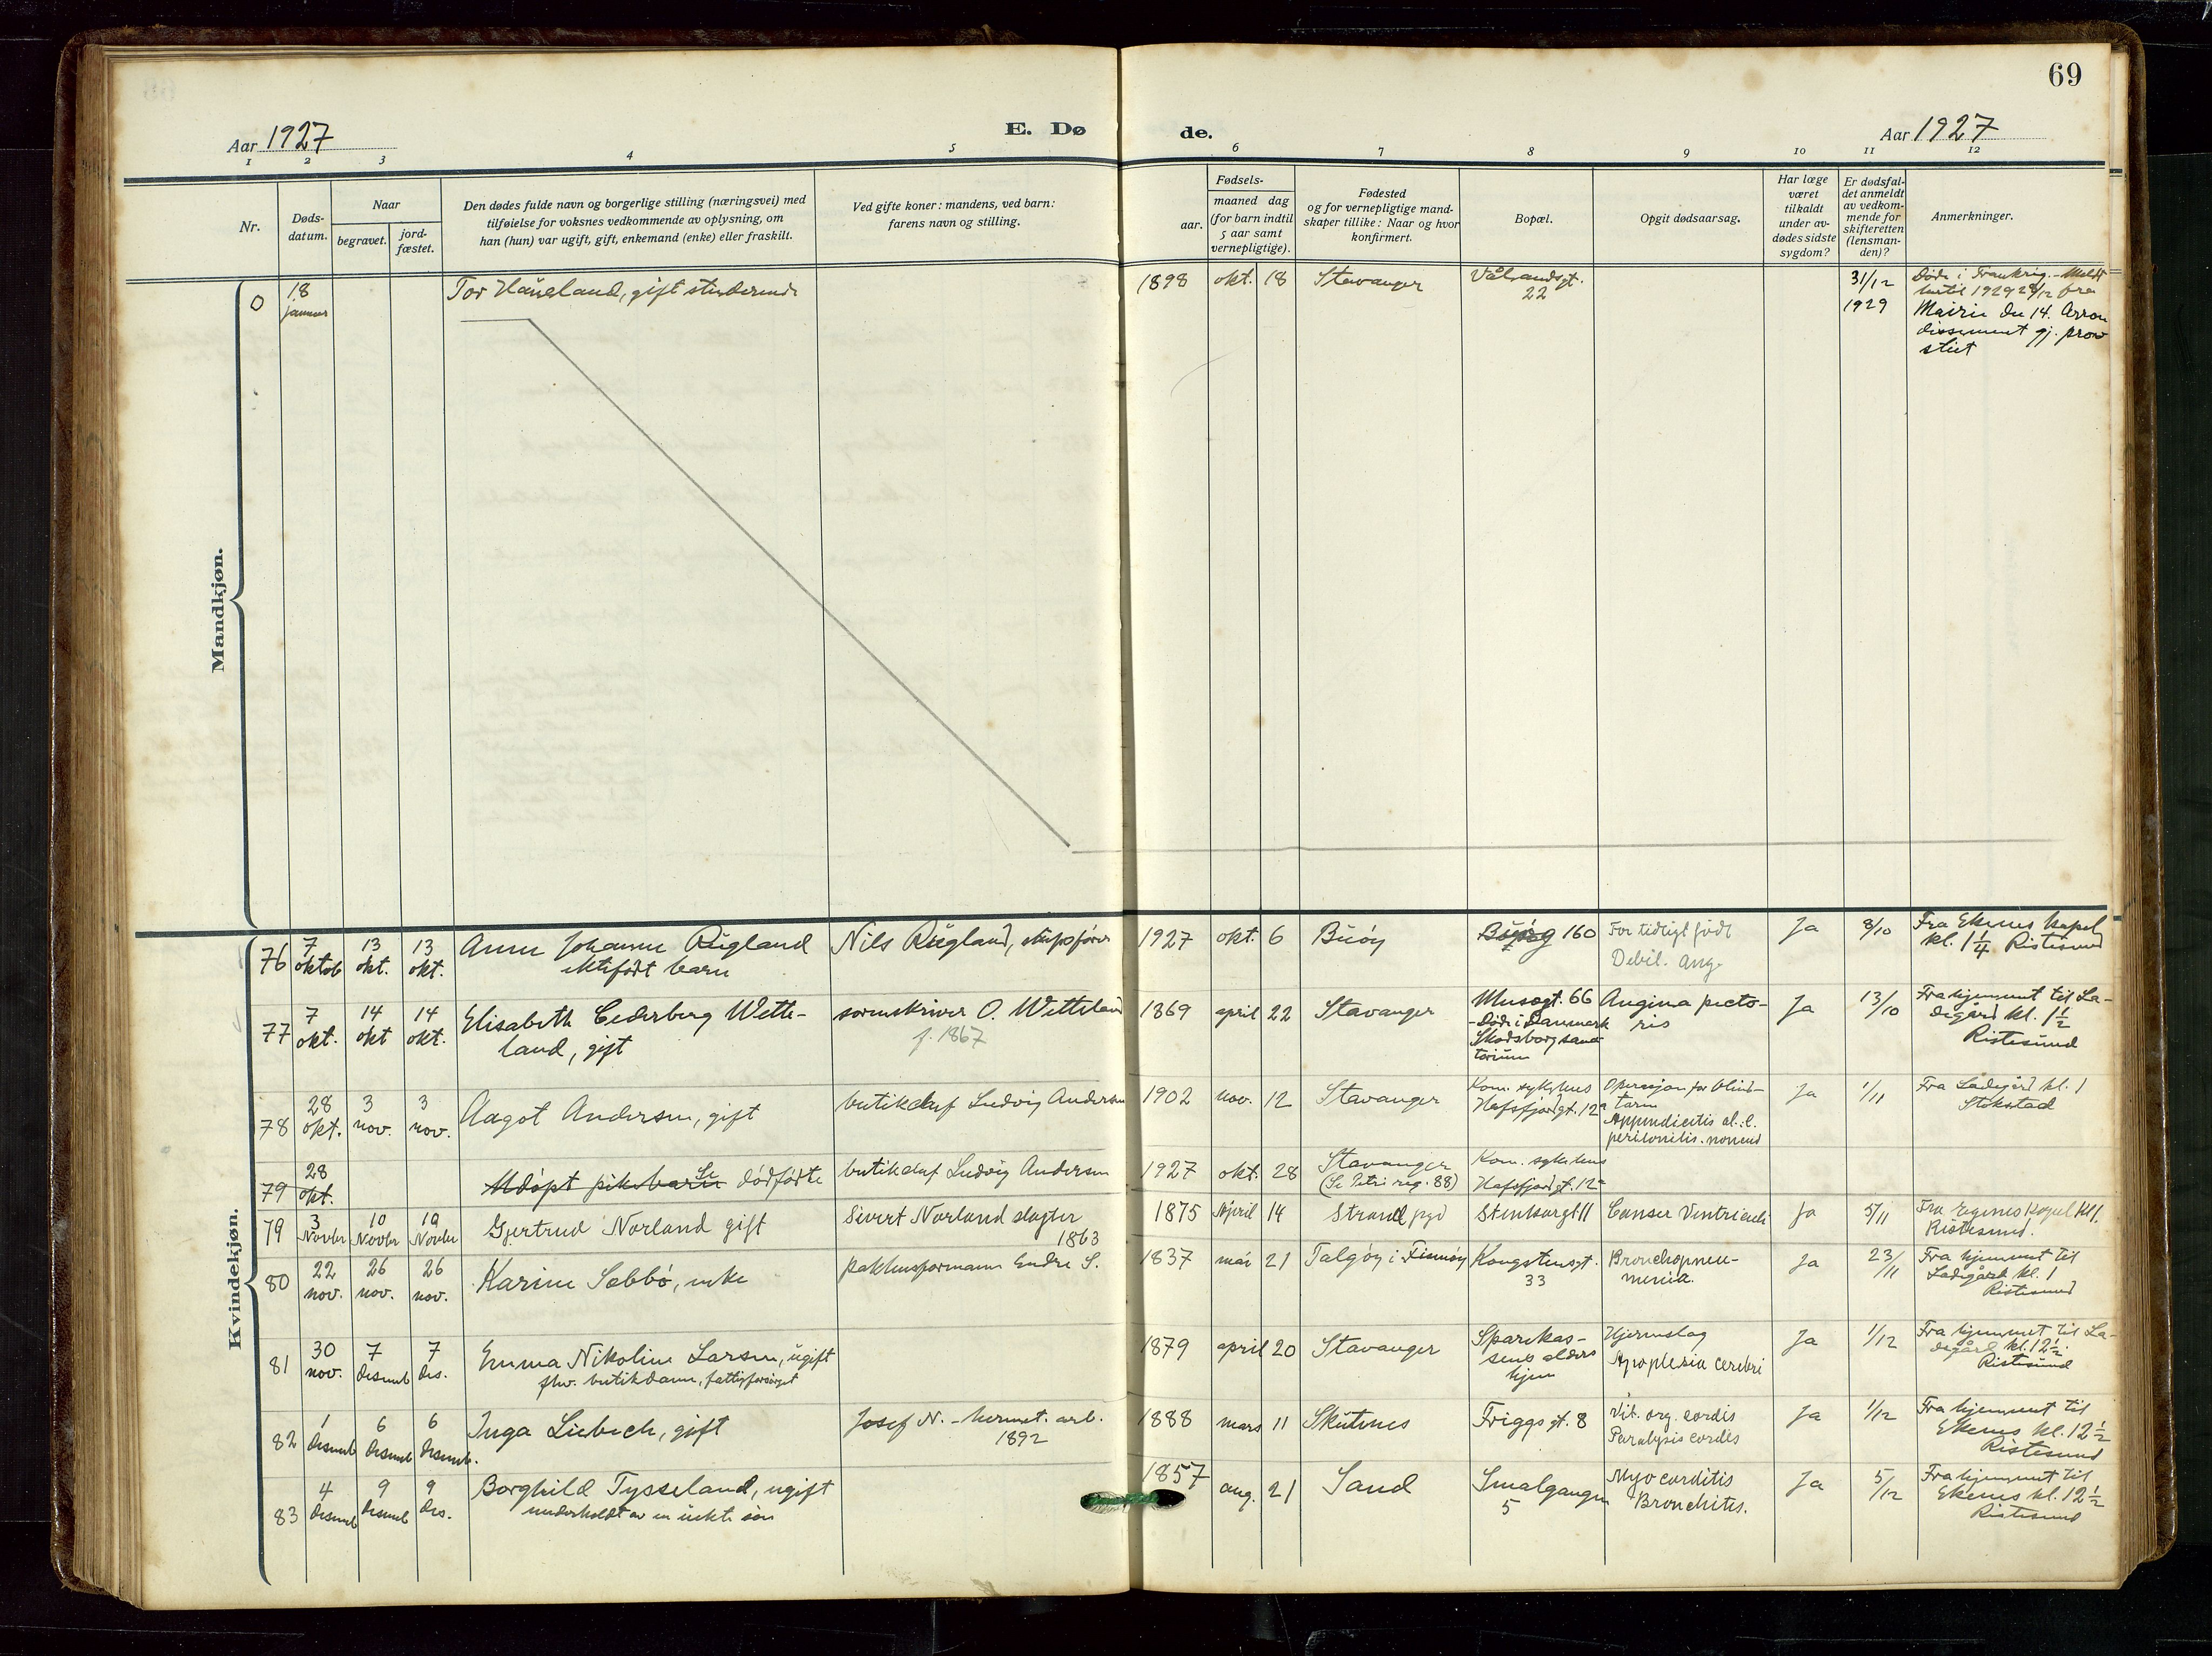 69
Aar 1927
E. Dø
de.
Aar 1927
1 2 3 4 5 6 7 8 9 10 11 12
Nr.
Døds-
datum.
Naar
begravet.
jord-
fæstet.
Den dødes fulde navn og borgerlige stilling (næringsvei) med
tilføielse for voksnes vedkommende av oplysning, om
han (hun) var ugift, gift, enkemand (enke) eller fraskilt.
Ved gifte koner: mandens, ved barn:
farens navn og stilling.
Fødsels-
aar.
maaned dag
(for barn indtil
5 aar samt
vernepligtige).
Fødested
og for vernepligtige mand-
skaper tillike: Naar og hvor
konfirmert.
Bopæl.
Opgit dødsaarsag.
Har læge
været
tilkaldt
under av-
dødes sidste
sygdom?
Er dødsfal-
det anmeldt
av vedkom-
mende for
skifteretten
(lensman-
den)?
Anmerkninger.
Mandkjøn.
0
18
januar
Tor Haaeland, gift studerende
1898 okt. 18 Stavanger
Vålandsgt.
22
31/12
1929
Døde i Frankrig. - Meldt
hertil 1929 28/12 fra
Mairie du 14. Arron
dissement gj. prov
stiet
Kvindekjøn.
76
7
oktob
13
okt.
13
okt.
Anne Johanne Rugland
ektefødt barn
Nils Rugland, skipsfører
1927 okt. 6 Buøy
Buøy 160
For tidligt født
Debil.
Ja
8/10
Fra Ekenes kapel
kl. 1 1/4 Ristesund
77
7
okt.
14
okt
14
okt.
Elisabeth Cederberg Wette-
land, gift
sorenskriver O. Wetteland
f. 1867
1869 april 22 Stavanger
Musegt. 66
- Døde i Danmark
Skodsborg sana-
torium
Angina pecto-
ris
Ja
13/10
Fra hjemmet til La-
degård kl. 1 1/2
Ristesund
78
28
okt.
3
nov.
3
nov.
Aagot Andersen, gift
butikchef Ludvig Andersen
1902 nov. 12 Stavanger
Kom. sykehus
Hafsfjordgt. 12a
Operasjon for blind-
tarm
Appendicitis
Ja
1/11
Fra Ladegård kl. 1
Stokstad
79
28
okt.
Udøpt pikebarn Se dødfødte
butikchef Ludvig Andersen
1927 okt. 28
Stavanger
(St. Petri reg. 88)
Kom. sykehus
Hafsfjordgt. 12a
79
3
Novbr
10
Novbr
10
Novbr
Gjertrud Norland gift
Sivert Norland slagter
1863
1875 April 14 Strand pgd
Stenhavgt 11
Canser Ventriculi
Ja
5/11
Fra Egenes kapel kl 1.
Ristesund.
80
22
nov.
26
nov.
26
nov.
Karine Sebbø, enke
pakhusformann Endre S.
1837 mai 21 Talgøy i Finnøy
Kongstensgt.
33
Bronchopneu-
monia.
Ja
23/11
Fra hjemmet til
Ladegård kl. 1
Ristesund
81
30
nov.
7
desemb
7
des.
Emma Nikoline Larsen, ugift
fhv. butikdame, fattigforsørget
1879 april 20 Stavanger
Sparekas-
sens alders
hjem
Hjerneslag
Apoplexia cerebri
Ja
1/12
Fra hjemmet til La-
degård kl. 12 1/2.
Ristesund
82
1
desemb
6
desemb
6
desemb.
Inga Liebech, gift
Josef N. - hermet. arb.
1892
1888 mars 11 Skutenes
Friggs gt. 8
Vit. org. cordis
Paralysis cordis
Ja
1/12
Fra hjemmet til
Ekenes kl. 12 1/2
Ristesund
83
4
desemb
9
desemb
9
des.
Borghild Tysseland, ugift
underholdt av en uekte søn
1857 aug. 21 Sand
Smalgangen
5
Myocarditis
Bronchitis.
Ja
5/12
Fra hjemmet til
Ekenes kl. 12 1/2
Ristesund